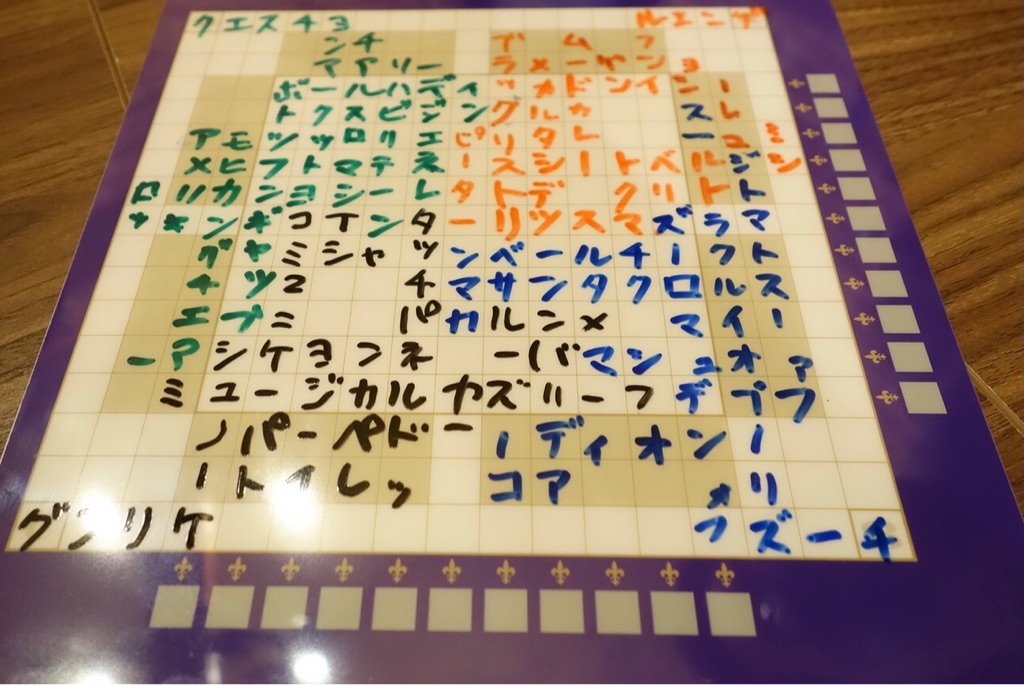 クエスチヨ ルエンゲ
ンチ ブムフ
マアリー ラメーゲンヨ
ボールハディィッオドンインー
トクスビジングルカスレ
アモツッロリエピリタレーユミ
メヒフトマテネースシートベルジシ
ロリカンヨシーレタトデクリトト
ンギコインターリツスマズラマ
グヤミシャツンベールチークト
チツ2チマサンタクロルス
エブニパカルンメマイー
ーアシケヨフネーバマンュオァ
ミュージカルカズリーフデプフ
ノパーペドーーディオンー
ートイレッコアォリ
グンリケフズーチ